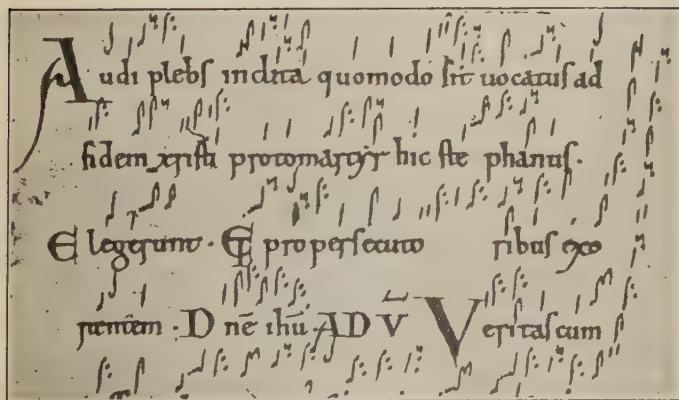 Audi plebs inclita quomodo sit uocatus ad
fidem xristi protomartyr hic ste phanus.
Elegerunt. Et pro persecuto ribus exo
rantem. Dnē ihū. AD V̄ Veritas cum